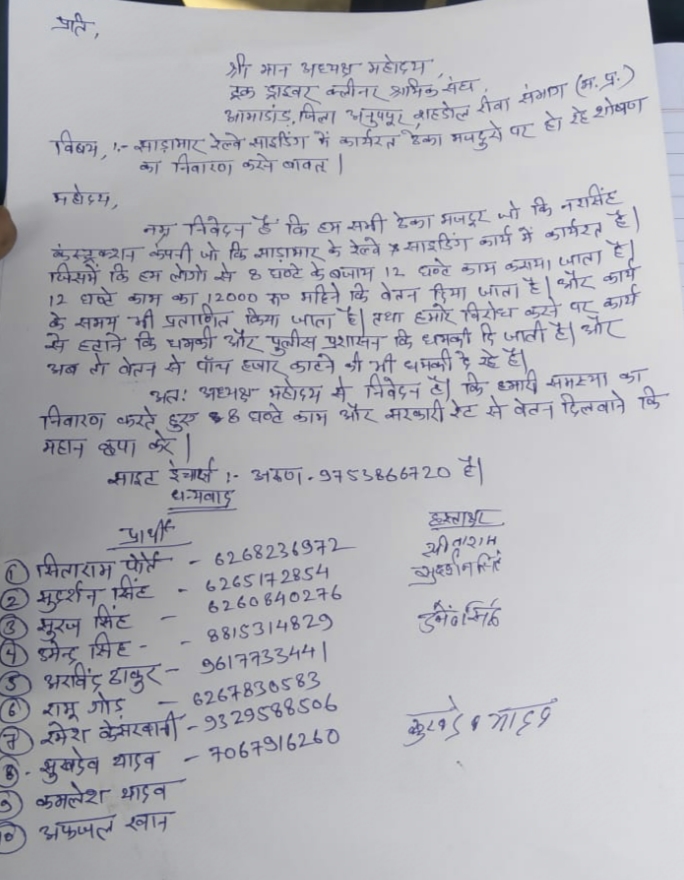 प्रति,
श्री मान अध्यक्ष महोदय,
ट्रक ड्राइवर क्लीनर श्रमिक संघ,
आमाडांड, जिला अनुपपुर शहडोल रीवा संभाग (म.प्र.)
विषय,:- साड़ामार रेल्वे साइडिंग में कार्यरत ठेका मजदुरो पर हो रहे शोषण
का निवारण करने बावत |
महोदय,
नम्र निवेदन है कि हम सभी ठेका मजदूर जो कि नरसिंह
कंस्ट्रक्शन कंपनी जो कि साड़ामार के रेल्वे साइडिंग कार्य में कार्यरत है|
जिसमें कि हम लोगो से 8 घण्टे के बजाय 12 घण्टे काम कराया जाता है|
12 घण्टे काम का 12000 रु० महिने कि वेतन दिया जाता है| और कार्य
के समय भी प्रताड़ित किया जाता है| तथा हमारे विरोध करने पर कार्य
से हटाने कि धमकी और पुलीस प्रशासन कि धमकी दि जाती है| और
अब तो वेतन से पाँच हजार काटने की भी धमकी दे रहे है|
अतः अध्यक्ष महोदय से निवेदन है| कि हमारी समस्या का
निवारण करते हुए 8 घण्टे काम और सरकारी रेट से वेतन दिलवाने कि
महान कृपा करे |
साइट इंचार्ज :- अरुण - 9753866720 है|
धन्यवाद
प्रार्थी हस्ताक्षर
① सिताराम पोर्ते - 6268236972 सीताराम
② सुदर्शन सिंह - 6265172854 सुदर्शन सिंह
③ सुरज सिंह - 6260840276
④ डमेन्द्र सिंह - 8815314829
⑤ अरविंद्र ठाकुर - 9617733441
⑥ रामू गोड़ - 6267830583
⑦ रमेश केसरवानी - 9329588506
⑧ सुखदेव यादव - 7067916260 सुखदेव यादव
⑨ कमलेश यादव
⑩ अफजल खान